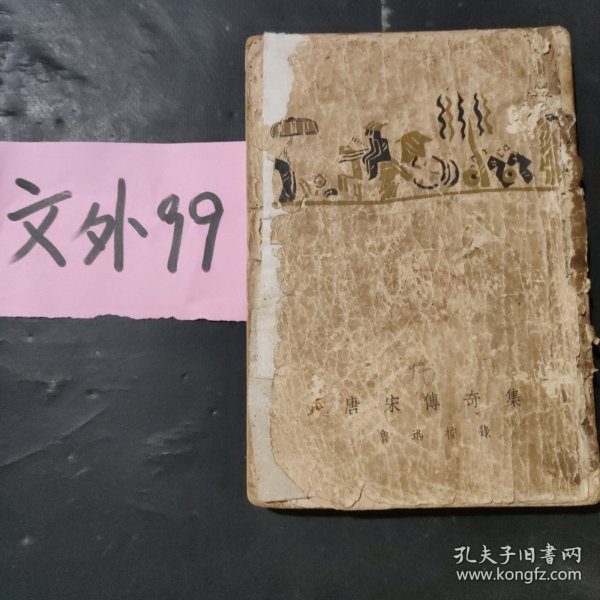 文外99
唐宋傳奇集
魯迅校錄
孔夫子旧書网
www.kongfz.com